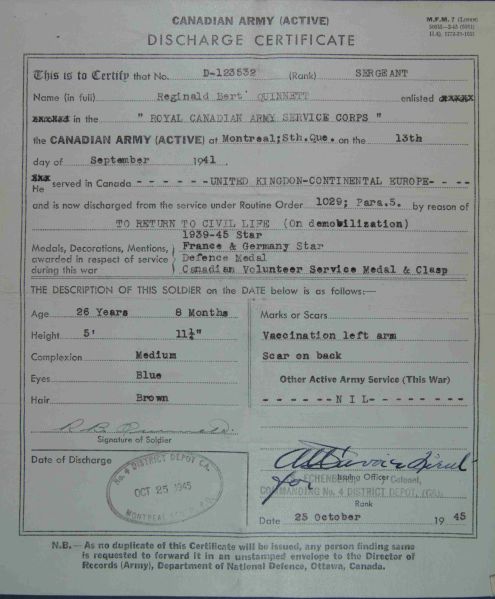 CANADIAN ARMY (ACTIVE)
M.F.M. 7
DISCHARGE CERTIFICATE
This is to Certify that No. D-123532 (Rank) SERGEANT
Name (in full) Reginald Bert' QUINNETT enlisted
in the " ROYAL CANADIAN ARMY SERVICE CORPS "
the CANADIAN ARMY (ACTIVE) at Montreal;Sth.Que. on the 13th
day of September 1941.
He served in Canada - - - - - -UNITED KINGDON-CONTINENTAL EUROPE- - - -
and is now discharged from the service under Routine Order 1029; Para.5. by reason of
TO RETURN TO CIVIL LIFE (On demobilization)
1939-45 Star
Medals, Decorations, Mentions, France & Germany Star
awarded in respect of service Defence Medal
during this war Canadian Volunteer Service Medal & Clasp
THE DESCRIPTION OF THIS SOLDIER on the DATE below is as follows:—
Age 26 Years 8 Months
Height 5' 11¼"
Complexion Medium
Eyes Blue
Hair Brown
Signature of Soldier
Marks or Scars
Vaccination left arm
Scar on back
Other Active Army Service (This War)
- - - - - -N I L- - - - - - - -
Date of Discharge
No. 4 DISTRICT DEPOT CA.
OCT 25 1945
MONTREAL
for Issuing Officer Colonel,
COMMANDING No. 4 DISTRICT DEPOT,
Rank
Date 25 October 19 45
N.B.—As no duplicate of this Certificate will be issued, any person finding same
is requested to forward it in an unstamped envelope to the Director of
Records (Army), Department of National Defence, Ottawa, Canada.